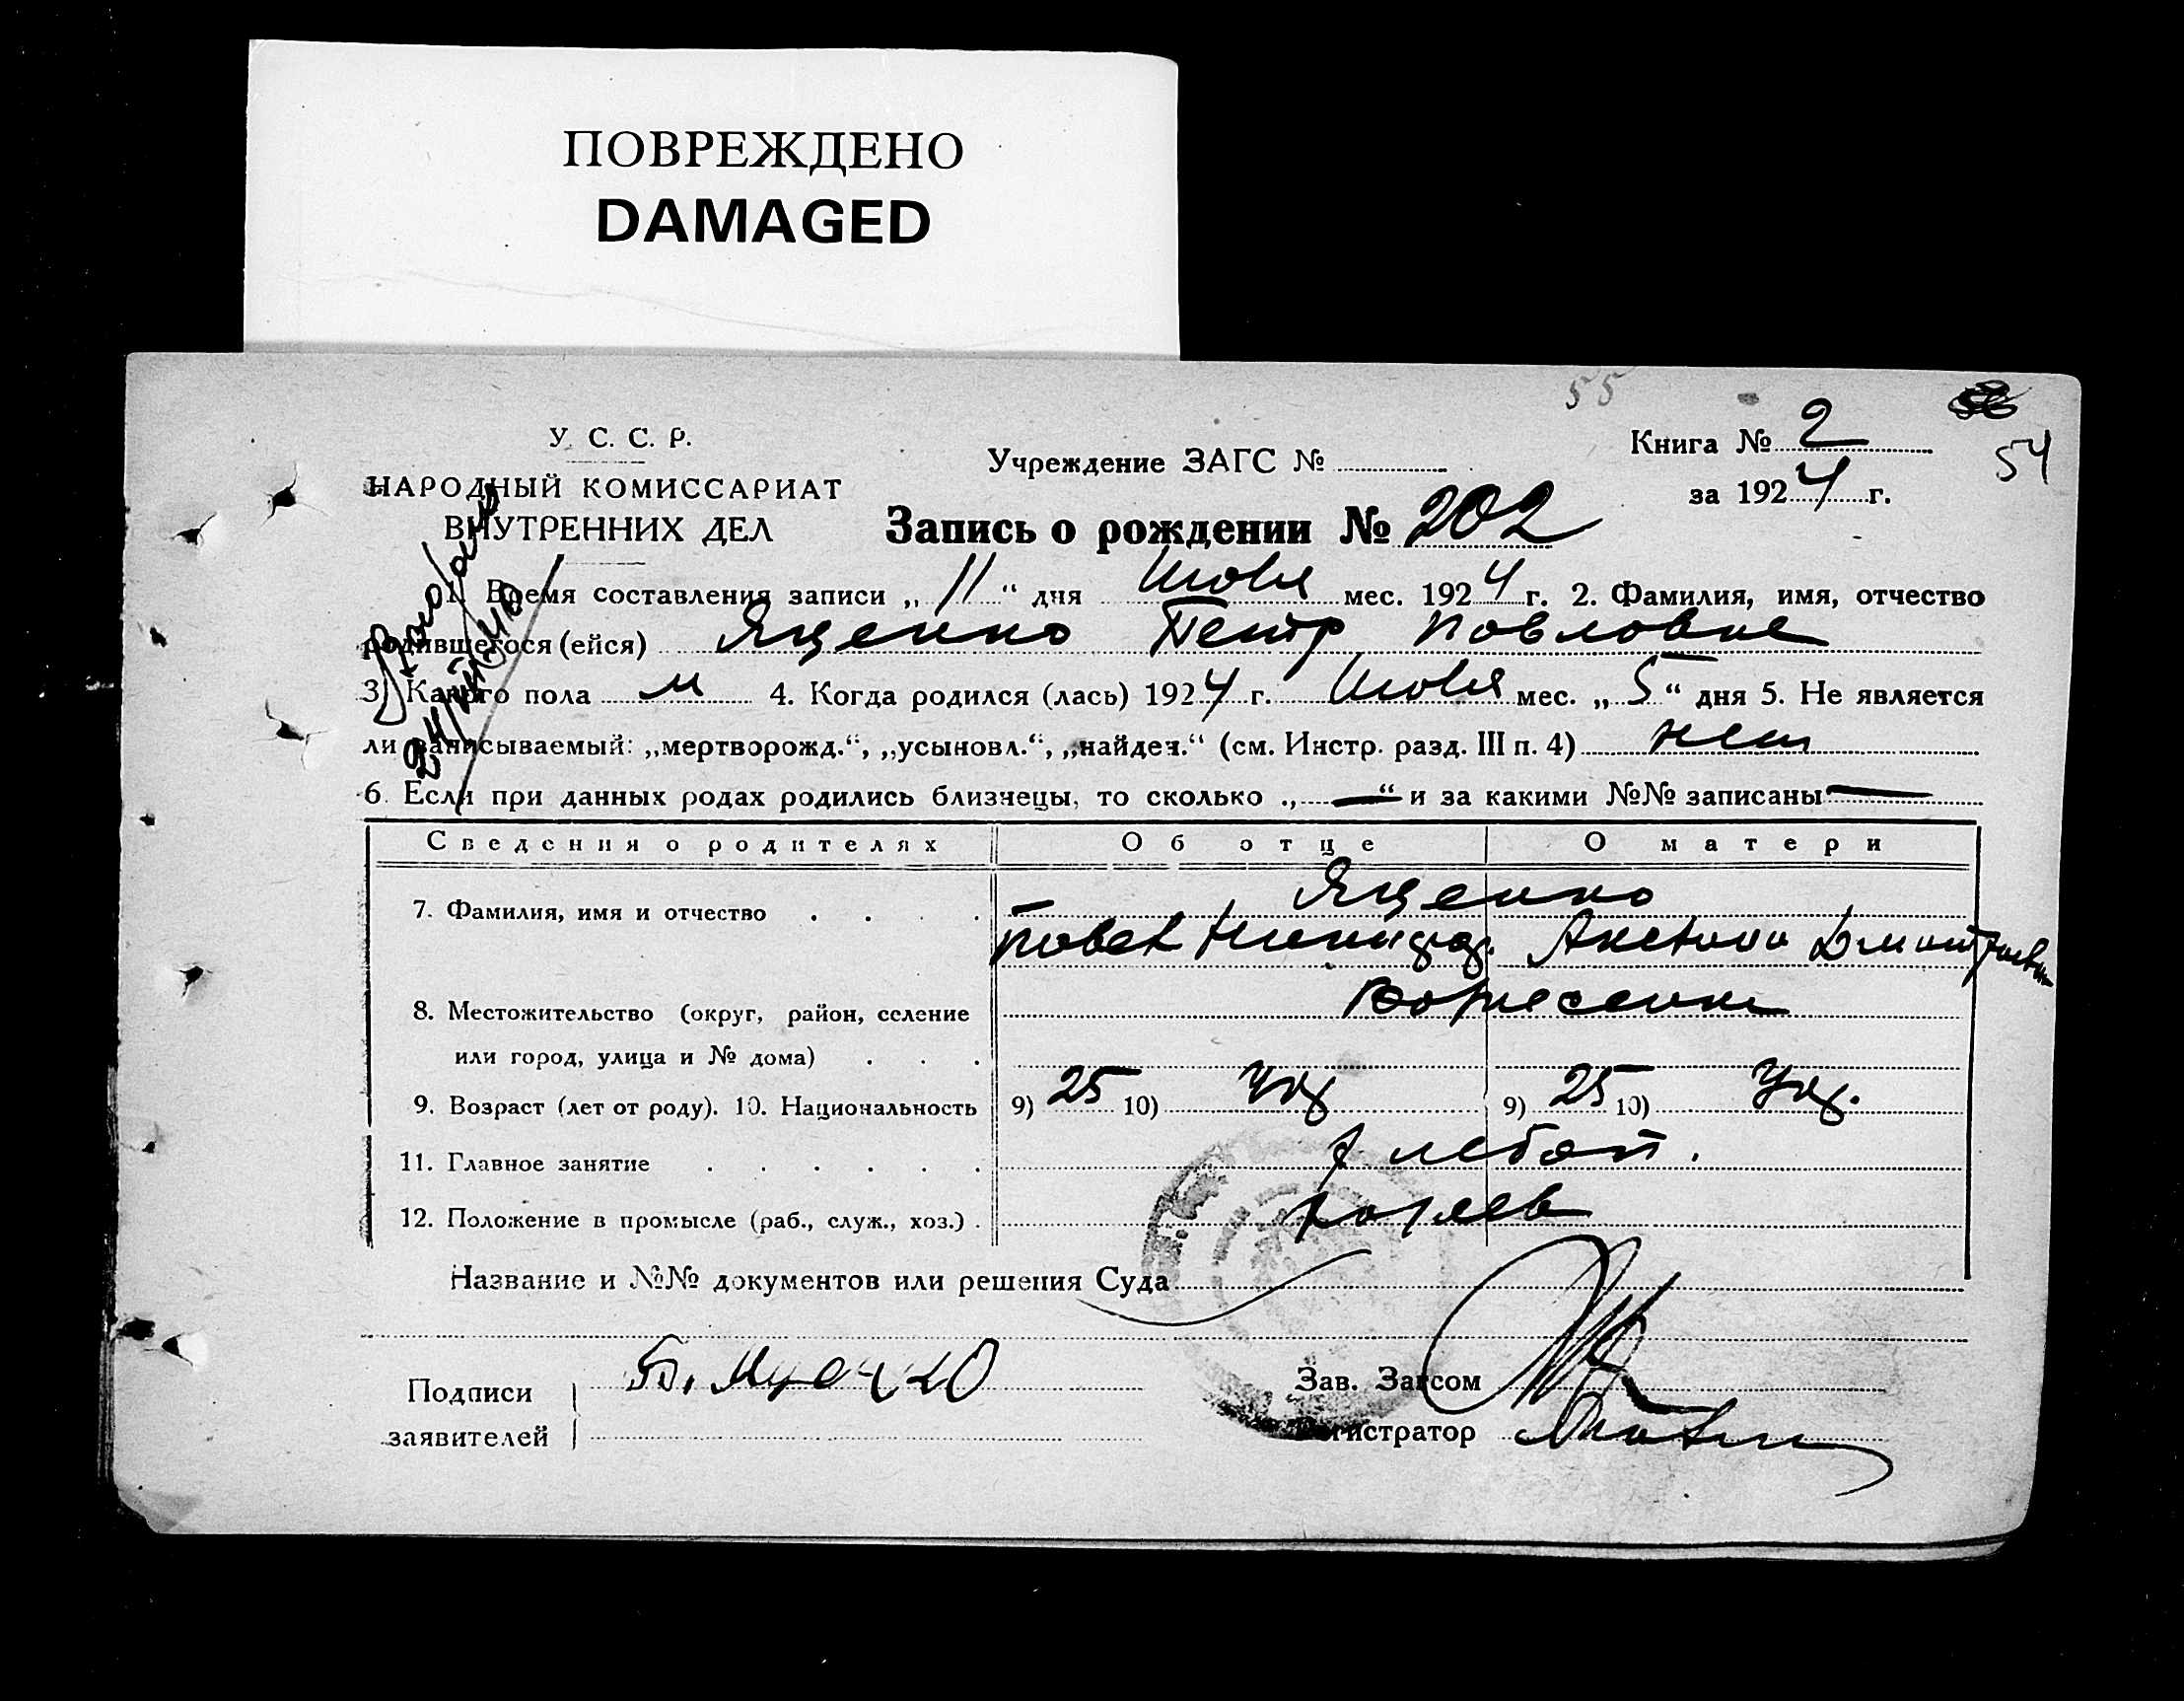 ПОВРЕЖДЕНО
DAMAGED
55
54
У. С. С. Р.
НАРОДНЫЙ КОМИССАРИАТ
ВНУТРЕННИХ ДЕЛ
Учреждение ЗАГС №
Книга № 2
за 1924 г.
Запись о рождении № 202
1. Время составления записи „11“ дня Июля мес. 1924 г. 2. Фамилия, имя, отчество
родившегося (ейся) Яценко Петр Павлович
3. Какого пола м 4. Когда родился (лась) 1924 г. Июля мес. „5“ дня 5. Не является
ли записываемый: „мертворожд.“, „усыновл.“, „найден.“ (см. Инстр. разд. III п. 4) нет
6. Если при данных родах родились близнецы, то сколько „—“ и за какими №№ записаны —
Сведения о родителях Об отце О матери
Яценко
7. Фамилия, имя и отчество
Павел Дмитр
8. Местожительство (округ, район, селение
или город, улица и № дома)
9. Возраст (лет от роду). 10. Национальность 9) 25 10) Укр 9) 25 10) Укр.
11. Главное занятие хлебоп.
12. Положение в промысле (раб., служ., хоз.) хозяев
Название и №№ документов или решения Суда
Подписи
заявителей
Зав. Загсом
Регистратор